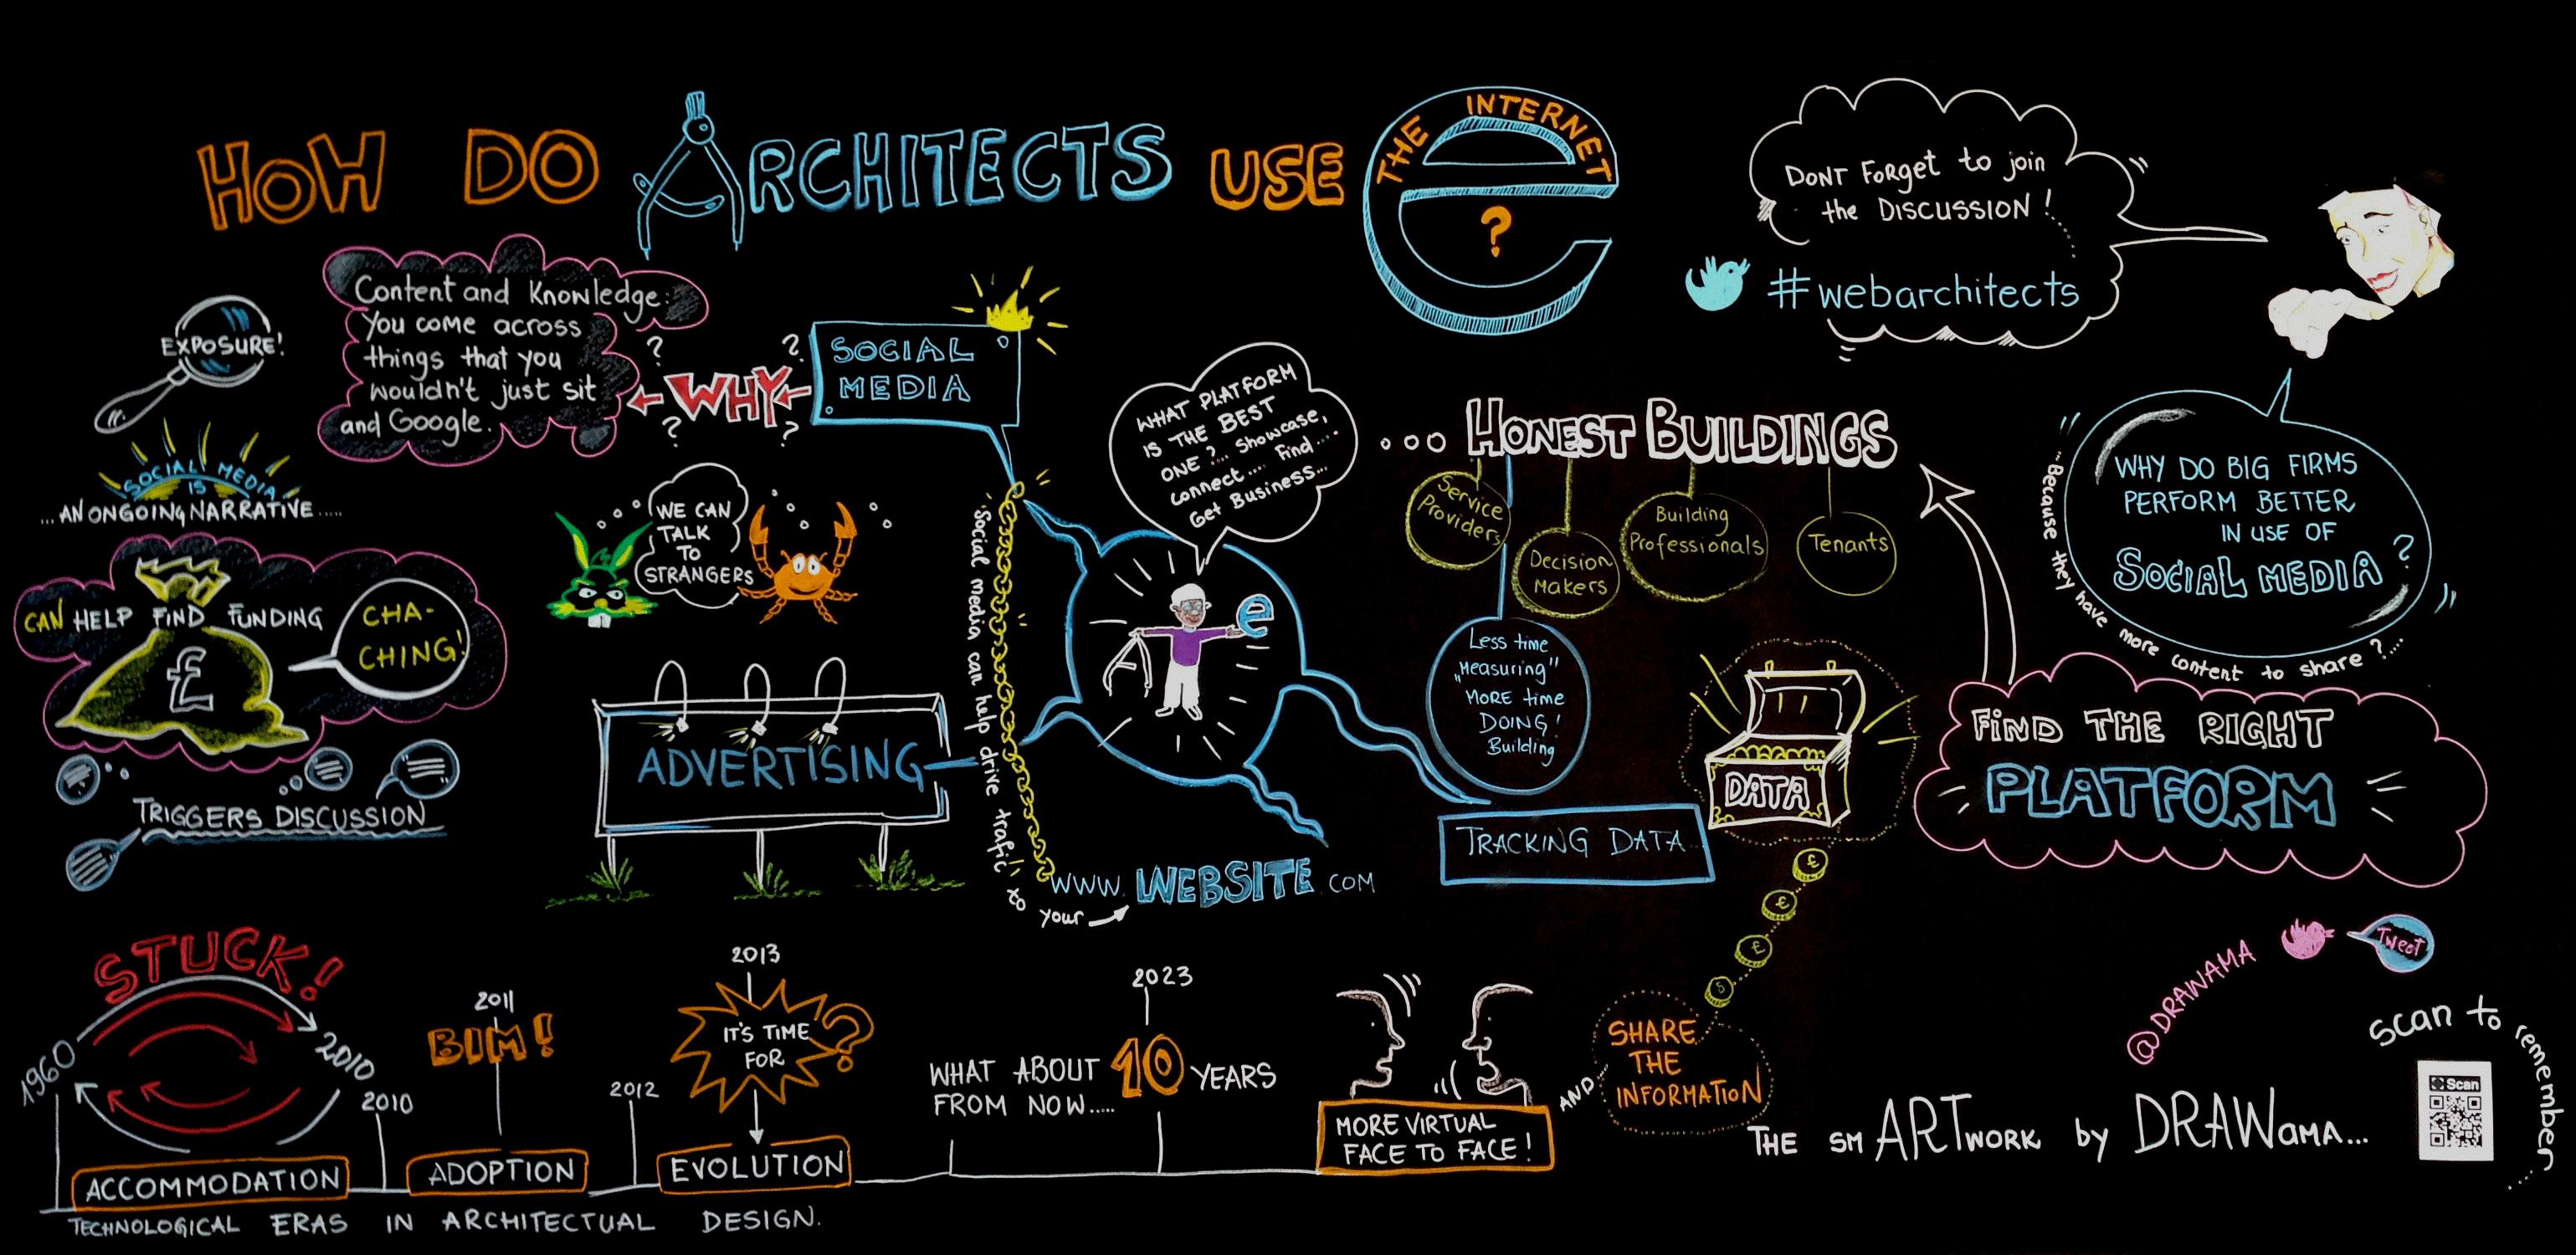 HOW DO ARCHITECTS USE THE INTERNET ?
DONT FORget to join
the DISCUSSION!
#webarchitects
EXPOSURE!
Content and Knowledge:
You come across
things that you
wouldn't just sit
and Google.
?
?
WHY
?
?
SOCIAL
MEDIA
SOCIAL MEDIA
IS
... AN ONGOING NARRATIVE.....
WE CAN
TALK
TO
STRANGERS
CAN HELP FIND FUNDING
£
CHA-
CHING!
TRIGGERS DISCUSSION
ADVERTISING
Social media can help drive trafic to your
WWW. WEBSITE .COM
WHAT PLATFORM
IS THE BEST
ONE?... Showcase,
connect.... Find....
Get Business...
e
... HONEST BUILDINGS
Service
Providers
Decision
Makers
Building
Professionals
Tenants
Less time
„Measuring"
MORE time
DOING!
Building
TRACKING DATA...
DATA
£
£
£
5
WHY DO BIG FIRMS
PERFORM BETTER
IN USE OF
SOCIAL MEDIA?
... Because they have more content to share?...
FIND THE RIGHT
PLATFORM
STUCK!
1960
2010
2010
ACCOMMODATION
2011
BIM!
ADOPTION
2012
2013
IT'S TIME
FOR
?
EVOLUTION
TECHNOLOGICAL ERAS IN ARCHITECTUAL DESIGN.
2023
WHAT ABOUT 10 YEARS
FROM NOW.....
MORE VIRTUAL
FACE TO FACE!
AND...
SHARE
THE
INFORMATION
@DRAWAMA
Tweet
THE smARTwork by DRAWAMA...
Scan to remember.....
Scan